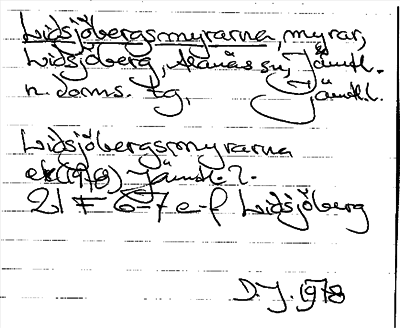 Lidsjöbergsmyrarna, myrar,
Lidsjöberg, Alanäs sn, Jämtl.
n. doms. tg, Jämtl. l.
Lidsjöbergsmyrarna
ek(1978) Jämtl. l.
21 F 6-7 e-f Lidsjöberg
D.J. 1978